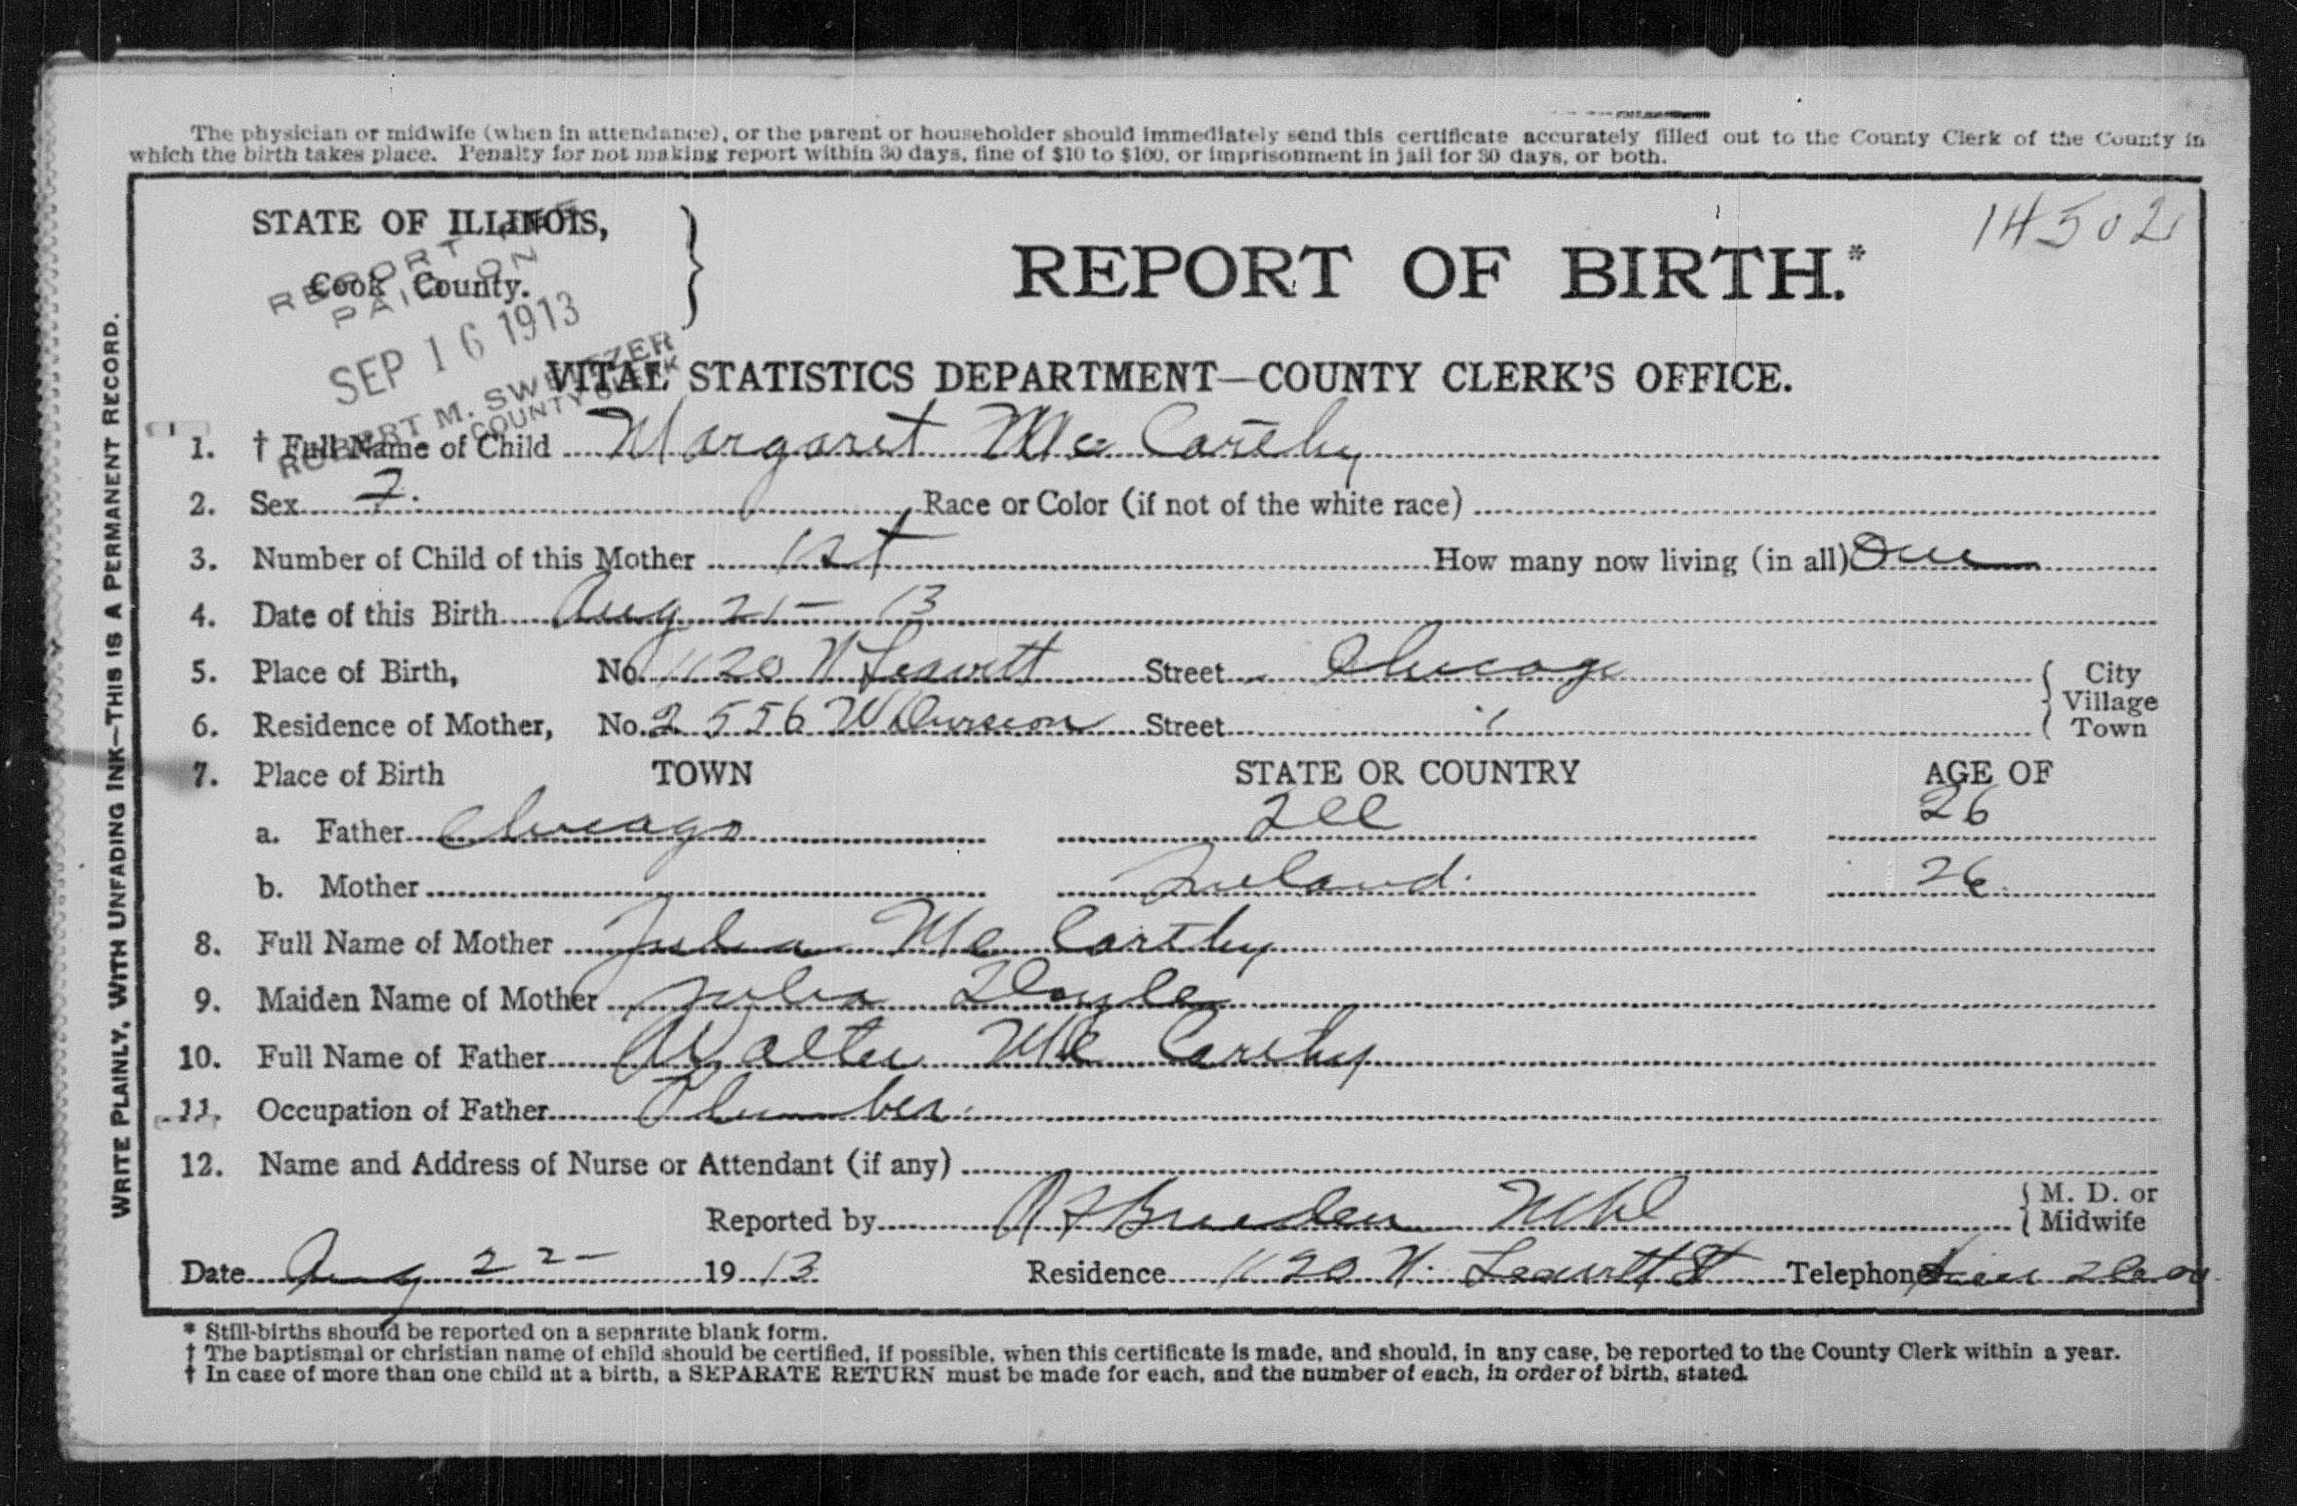 The physician or midwife (when in attendance), or the parent or householder should immediately send this certificate accurately filled out to the County Clerk of the County in
which the birth takes place. Penalty for not making report within 30 days, fine of $10 to $100, or imprisonment in jail for 30 days, or both.
STATE OF ILLINOIS,
Cook County.
REPORT OF BIRTH.*
14502
REPORT
PAID ON
SEP 16 1913
ROBERT M. SWEITZER
COUNTY CLERK
VITAL STATISTICS DEPARTMENT—COUNTY CLERK'S OFFICE.
1. † Full Name of Child Margaret Mc Carthy
2. Sex F. Race or Color (if not of the white race)
3. Number of Child of this Mother 1st How many now living (in all) One
4. Date of this Birth Aug 21 – 13
5. Place of Birth, No. 1120 N Leavitt Street Chicago City
Village
6. Residence of Mother, No. 2556 W Division Street " Town
7. Place of Birth TOWN STATE OR COUNTRY AGE OF
a. Father Chicago Ill 26
b. Mother Ireland. 26
8. Full Name of Mother Julia Mc Carthy
9. Maiden Name of Mother Julia Doyle
10. Full Name of Father Walter Mc Carthy
11. Occupation of Father Plumber
12. Name and Address of Nurse or Attendant (if any)
Reported by M. D. or
Midwife
Date Aug 22 – 1913 Residence 1120 N. Leavitt St Telephone
* Still-births should be reported on a separate blank form.
† The baptismal or christian name of child should be certified, if possible, when this certificate is made, and should, in any case, be reported to the County Clerk within a year.
† In case of more than one child at a birth, a SEPARATE RETURN must be made for each, and the number of each, in order of birth, stated.
WRITE PLAINLY, WITH UNFADING INK—THIS IS A PERMANENT RECORD.